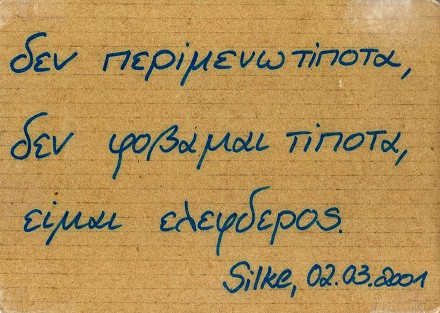 δεν περιμενω τιποτα,
δεν φοβαμαι τιποτα,
ειμαι ελεφδερος.
Silke, 02.03.2001